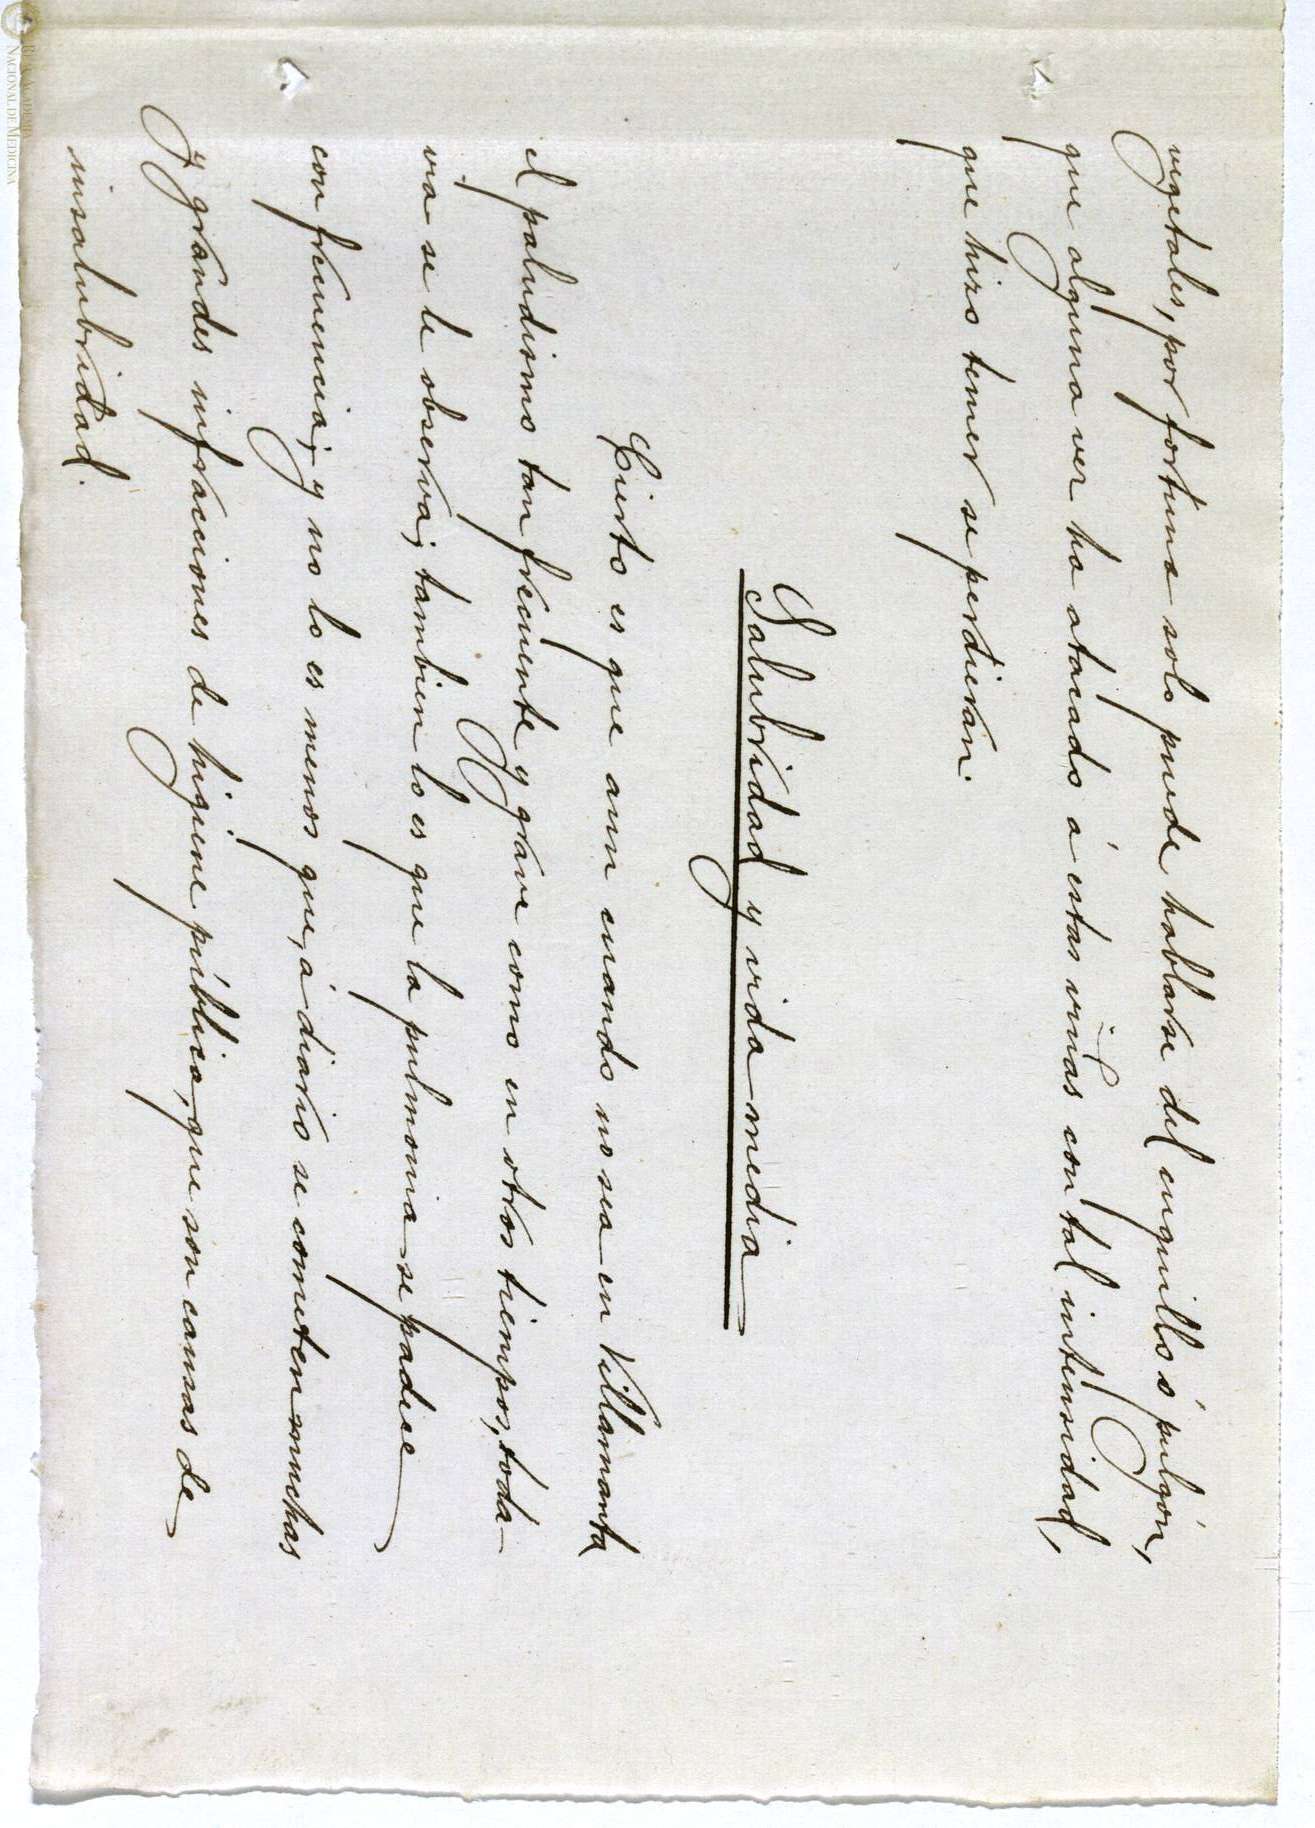 vegetales, por fortuna solo puede hablarse del cuquillo ó pulgón,
que alguna vez ha atacado á éstas viñas con tal intensidad,
que hizo temer se perdieran.
Salubridad y vida media
Cierto es que aun cuando no sea en Villamanta
el paludismo tan frecuente y grave como en otros tiempos, toda-
via se le observa; tambien lo es que la pulmonia se padece
con frecuencia; y no lo es menos que, á diario se cometen muchas
y grandes infracciones de higiene pública, que son causas de
insalubridad.
REAL ACADEMIA
NACIONAL DE MEDICINA